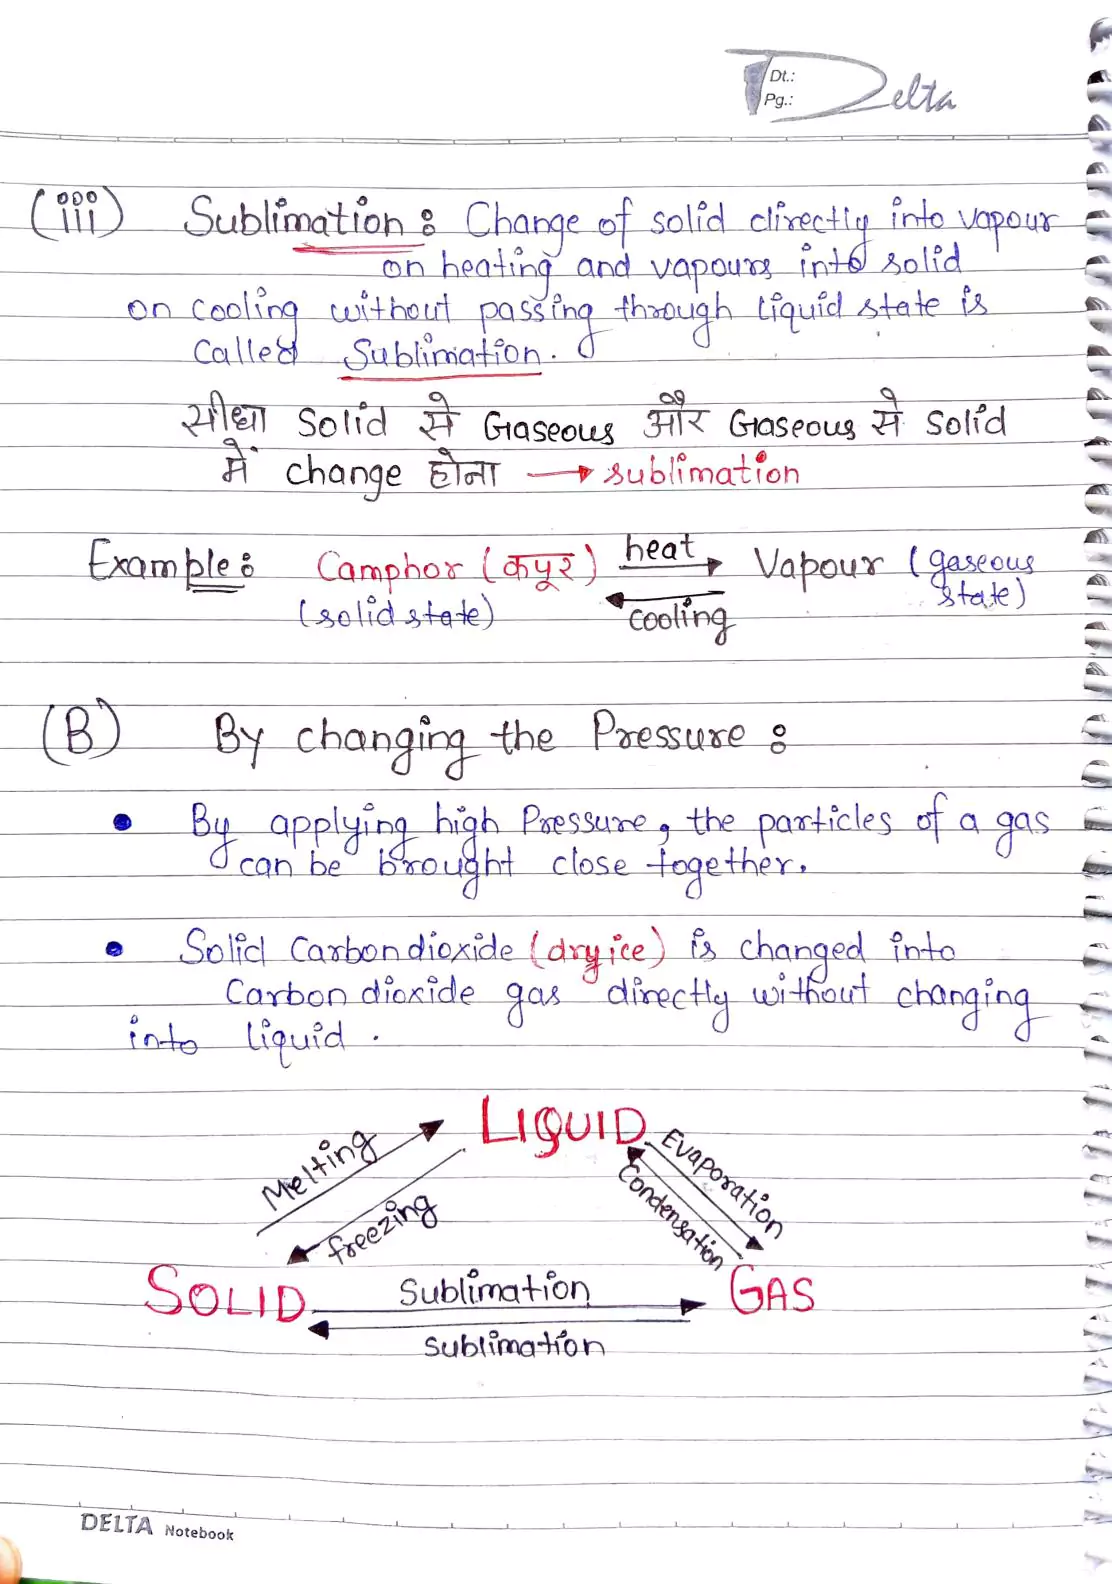 Dt.:
Pg.:
Delta
(iii) Sublimation: Change of solid directly into vapour
on heating and vapours into solid
on cooling without passing through liquid state is
called Sublimation.
सीधा Solid से Gaseous और Gaseous से Solid
में change होना → sublimation
Example: Camphor (कपूर) heat → Vapour (gaseous
(solid state) ← cooling state)
(B) By changing the Pressure:
• By applying high Pressure, the particles of a gas
can be brought close together.
• Solid Carbondioxide (dry ice) is changed into
Carbon dioxide gas directly without changing
into liquid.
LIQUID
Melting
Evaporation
freezing
Condensation
SOLID
Sublimation
GAS
sublimation
DELTA Notebook